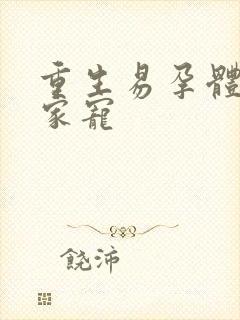 重生易孕體
家寵
饒沛